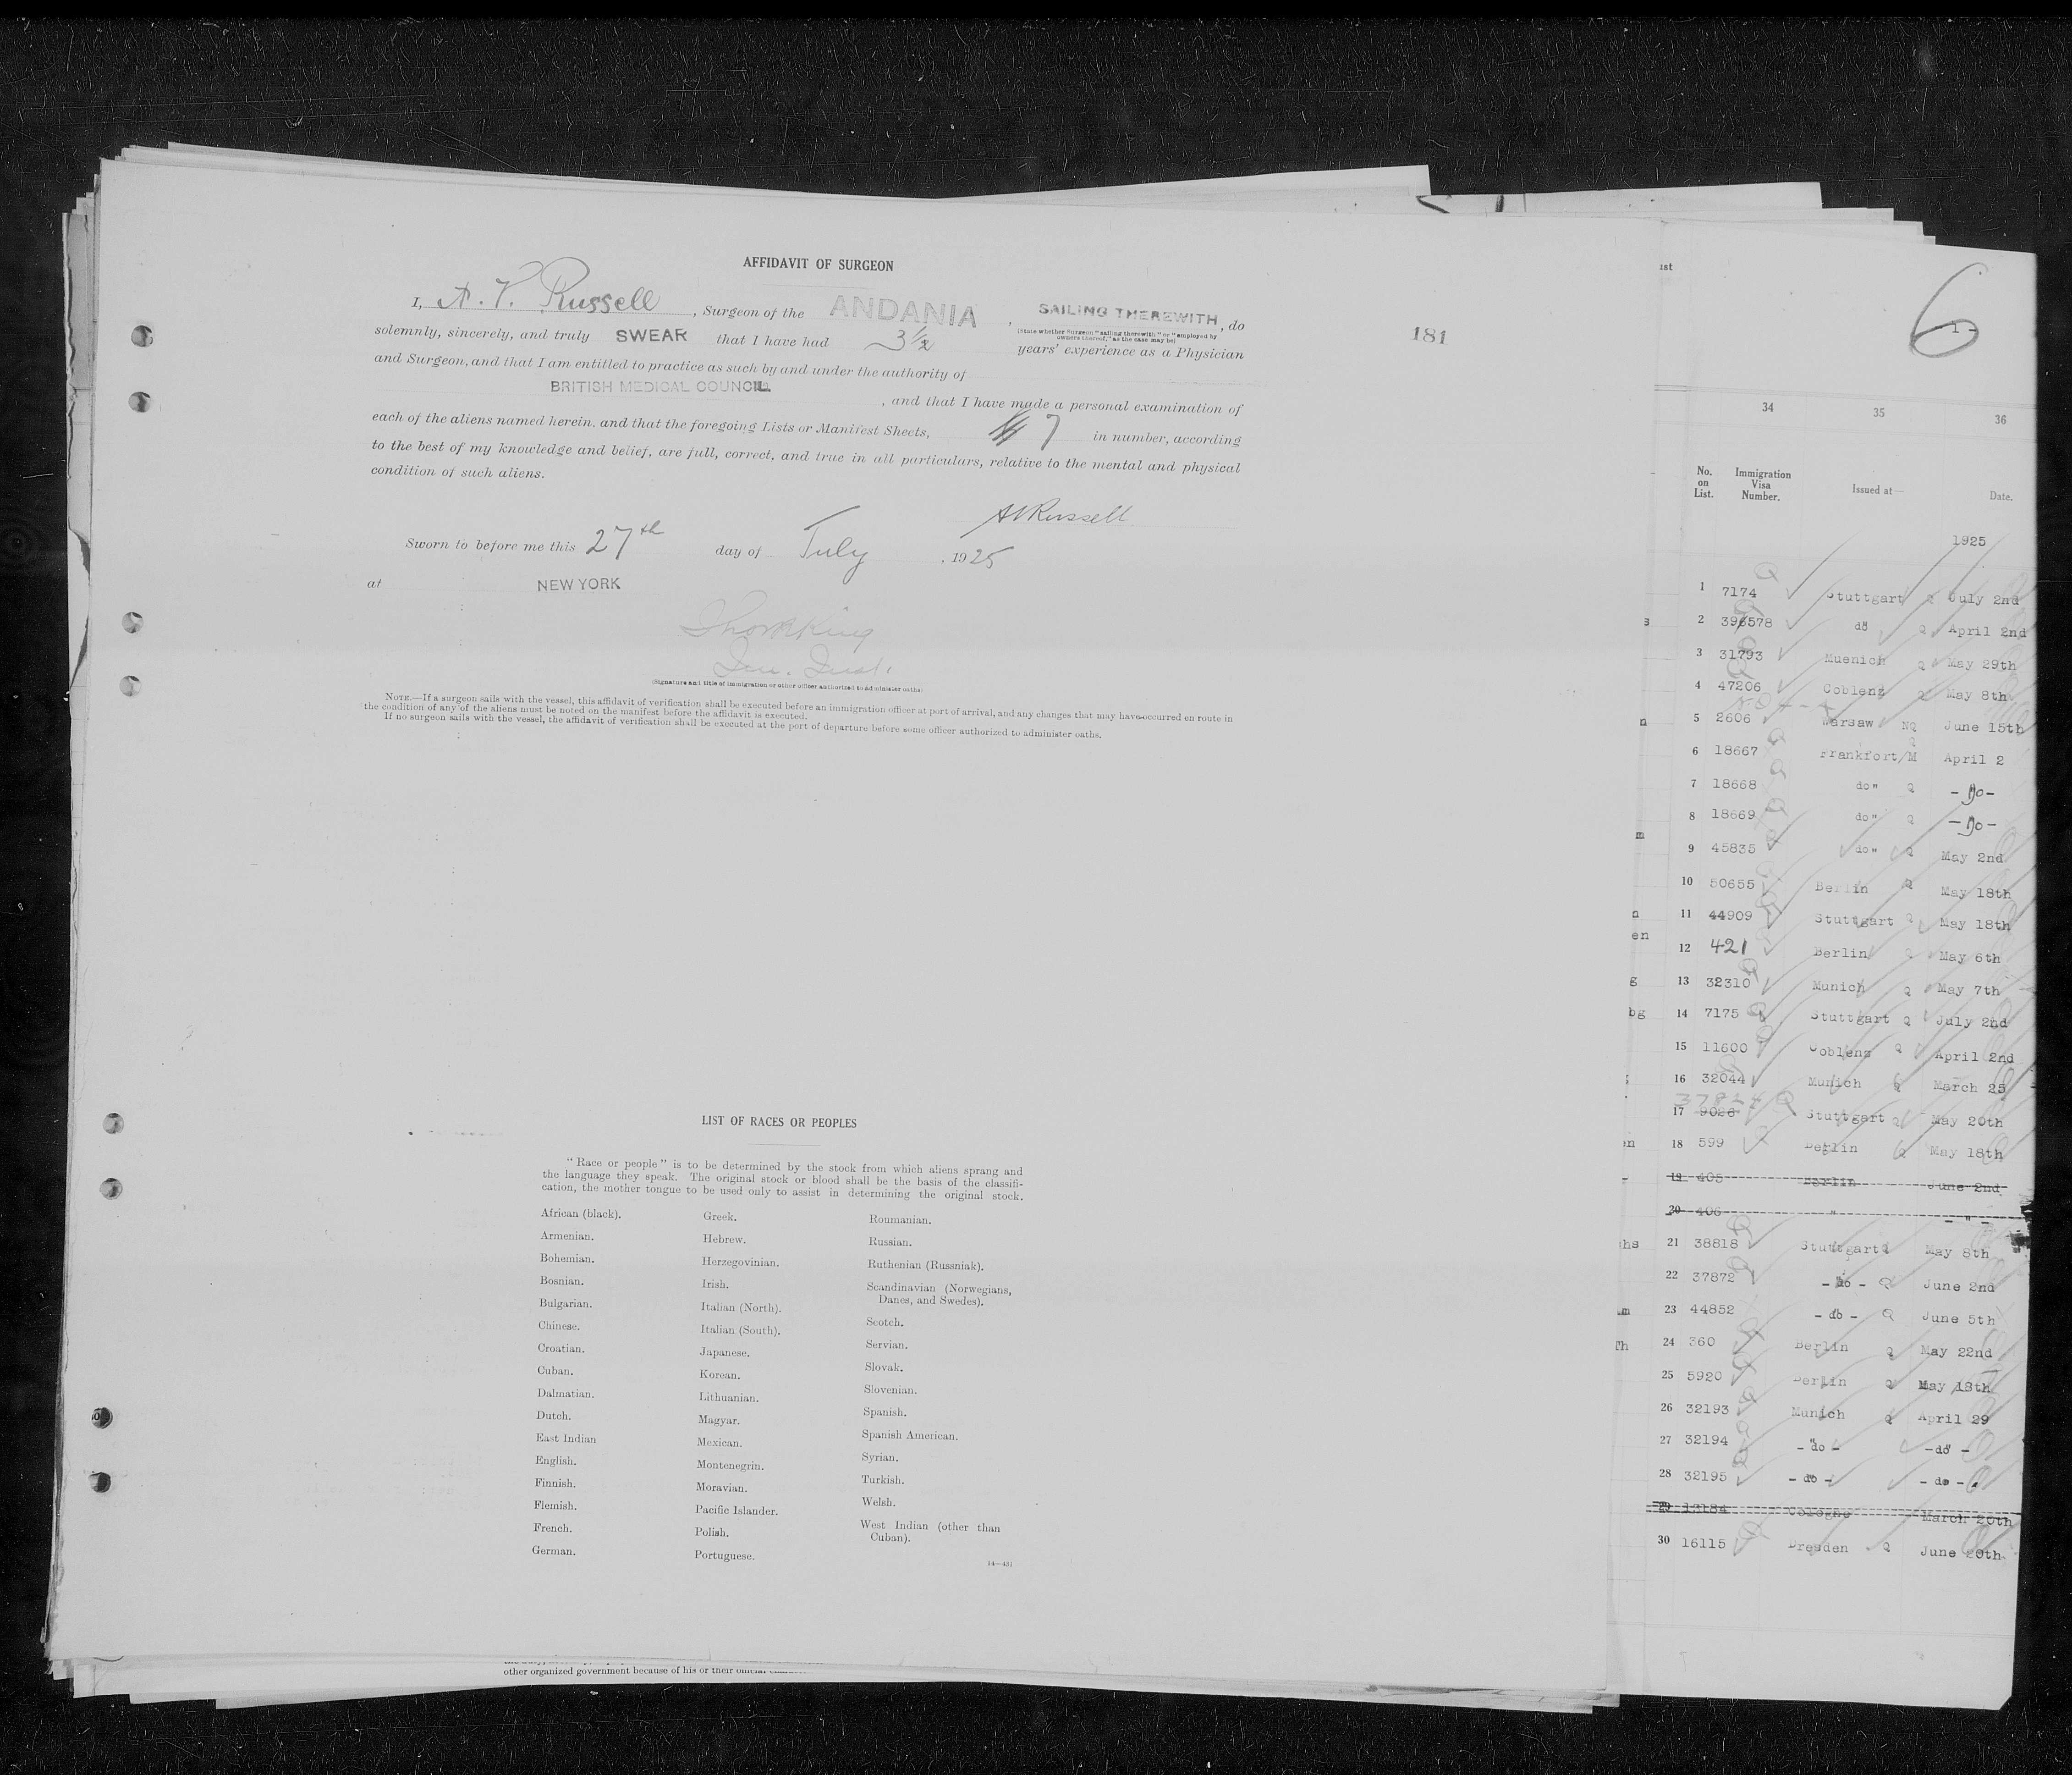 AFFIDAVIT OF SURGEON
I, A. V. Russell, Surgeon of the ANDANIA, SAILING THEREWITH, do
(State whether Surgeon "sailing therewith" or "employed by
owners thereof," as the case may be)
solemnly, sincerely, and truly SWEAR that I have had 3½ years' experience as a Physician
and Surgeon, and that I am entitled to practice as such by and under the authority of
BRITISH MEDICAL COUNCIL, and that I have made a personal examination of
each of the aliens named herein. and that the foregoing Lists or Manifest Sheets, 7 in number, according
to the best of my knowledge and belief, are full, correct, and true in all particulars, relative to the mental and physical
condition of such aliens.
AVRussell
Sworn to before me this 27th day of July, 1925
at NEW YORK
(Signature and title of immigration or other officer authorized to administer oaths)
NOTE.—If a surgeon sails with the vessel, this affidavit of verification shall be executed before an immigration officer at port of arrival, and any changes that may have occurred en route in
the condition of any of the aliens must be noted on the manifest before the affidavit is executed.
If no surgeon sails with the vessel, the affidavit of verification shall be executed at the port of departure before some officer authorized to administer oaths.
181
LIST OF RACES OR PEOPLES
"Race or people" is to be determined by the stock from which aliens sprang and
the language they speak. The original stock or blood shall be the basis of the classifi-
cation, the mother tongue to be used only to assist in determining the original stock.
African (black).
Armenian.
Bohemian.
Bosnian.
Bulgarian.
Chinese.
Croatian.
Cuban.
Dalmatian.
Dutch.
East Indian
English.
Finnish.
Flemish.
French.
German.
Greek.
Hebrew.
Herzegovinian.
Irish.
Italian (North).
Italian (South).
Japanese.
Korean.
Lithuanian.
Magyar.
Mexican.
Montenegrin.
Moravian.
Pacific Islander.
Polish.
Portuguese.
Roumanian.
Russian.
Ruthenian (Russniak).
Scandinavian (Norwegians,
Danes, and Swedes).
Scotch.
Servian.
Slovak.
Slovenian.
Spanish.
Spanish American.
Syrian.
Turkish.
Welsh.
West Indian (other than
Cuban).
14—431
other organized government because of his or their
ist
6
- 1 -
34 35 36
No. on List. Immigration Visa Number. Issued at— Date.
1925
1 7174 Stuttgart Q July 2nd
2 396578 do Q April 2nd
3 31793 Muenich Q May 29th
4 47206 Coblenz Q May 8th
5 2606 Warsaw NQ June 15th
6 18667 Frankfort/M Q April 2
7 18668 do" Q - Do -
8 18669 do" Q - Do -
9 45835 do" Q May 2nd
10 50655 Berlin Q May 18th
11 44909 Stuttgart Q May 18th
12 421 Berlin Q May 6th
13 32310 Munich Q May 7th
14 7175 Stuttgart Q July 2nd
15 11600 Coblenz Q April 2nd
16 32044 Munich Q March 25
17 9026 Stuttgart Q May 20th
18 599 Berlin Q May 18th
19 405 Berlin June 2nd
20 406 " - " -
21 38818 Stuttgart Q May 8th
22 37872 - do - Q June 2nd
23 44852 - do - Q June 5th
24 360 Berlin Q May 22nd
25 5920 Berlin Q May 18th
26 32193 Munich Q April 29
27 32194 - do - - do -
28 32195 - do - - do -
29 13184 Cologne March 20th
30 16115 Dresden Q June 20th